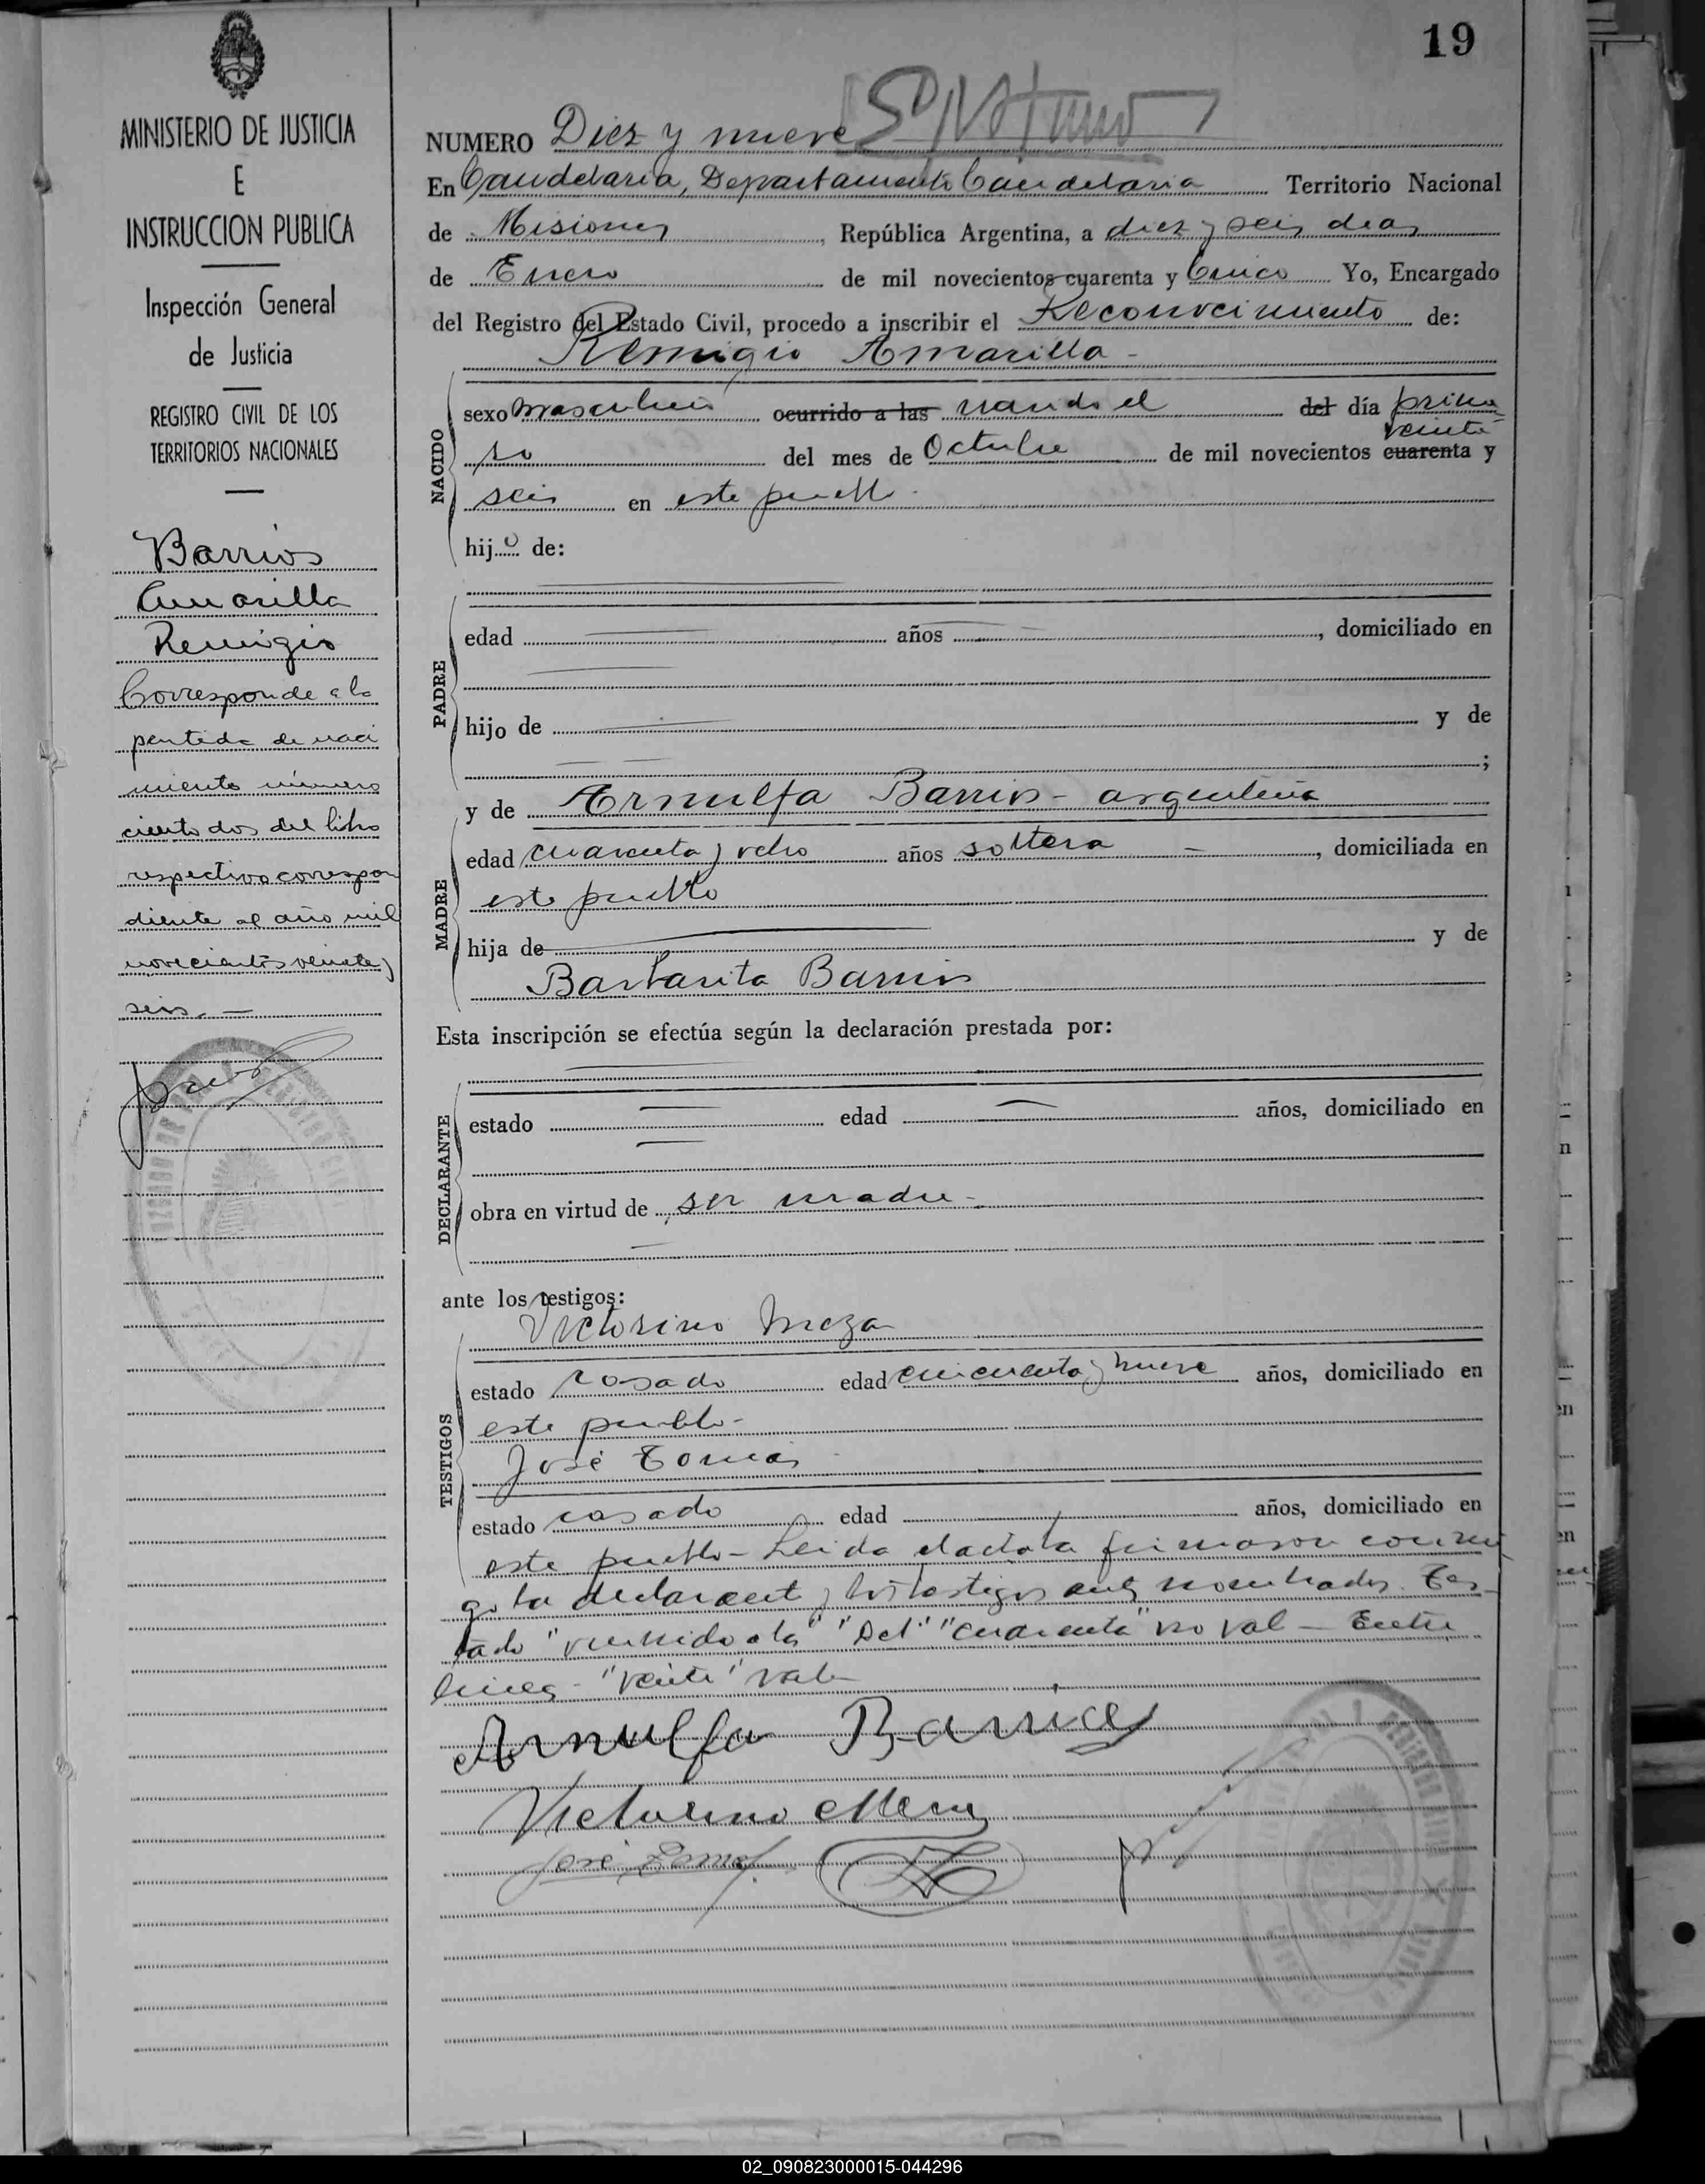 19
MINISTERIO DE JUSTICIA
E
INSTRUCCION PUBLICA
Inspección General
de Justicia
REGISTRO CIVIL DE LOS
TERRITORIOS NACIONALES
Barrios
Amarilla
Remigio
Corresponde a la
partida de naci
miento número
ciento dos del libro
respectivo correspon
diente al año mil
novecientos veinte y
seis. —
NUMERO Diez y nueve
En Candelaria, Departamento Candelaria Territorio Nacional
de Misiones, República Argentina, a diez y seis dias
de Enero de mil novecientos cuarenta y Cinco Yo, Encargado
del Registro del Estado Civil, procedo a inscribir el Reconocimiento de:
Remigio Amarilla -
NACIDO
sexo masculino ocurrido a las nacido el del día prime
veinte
ro del mes de Octubre de mil novecientos cuarenta y
seis en este pueblo.
hijo de:
PADRE
edad años , domiciliado en
hijo de y de
;
y de Arnulfa Barrios - argentina
MADRE
edad cuarenta y ocho años soltera - , domiciliada en
este pueblo
hija de y de
Barbarita Barrios
Esta inscripción se efectúa según la declaración prestada por:
DECLARANTE
estado edad años, domiciliado en
obra en virtud de ser madre -
ante los testigos:
TESTIGOS
Victorino Meza
estado casado edad cincuenta y nueve años, domiciliado en
este pueblo -
José Tomas
estado casado edad años, domiciliado en
este pueblo - Leida el acta la firmaron conmi
go la declarante y los testigos antes nombrados. Tes-
tado "ocurrido a las" "Del" "cuarenta" no vale - Entre
lineas - "veinte" vale
Arnulfa Barrios
Victorino Meza
José Tomas
02_090823000015-044296